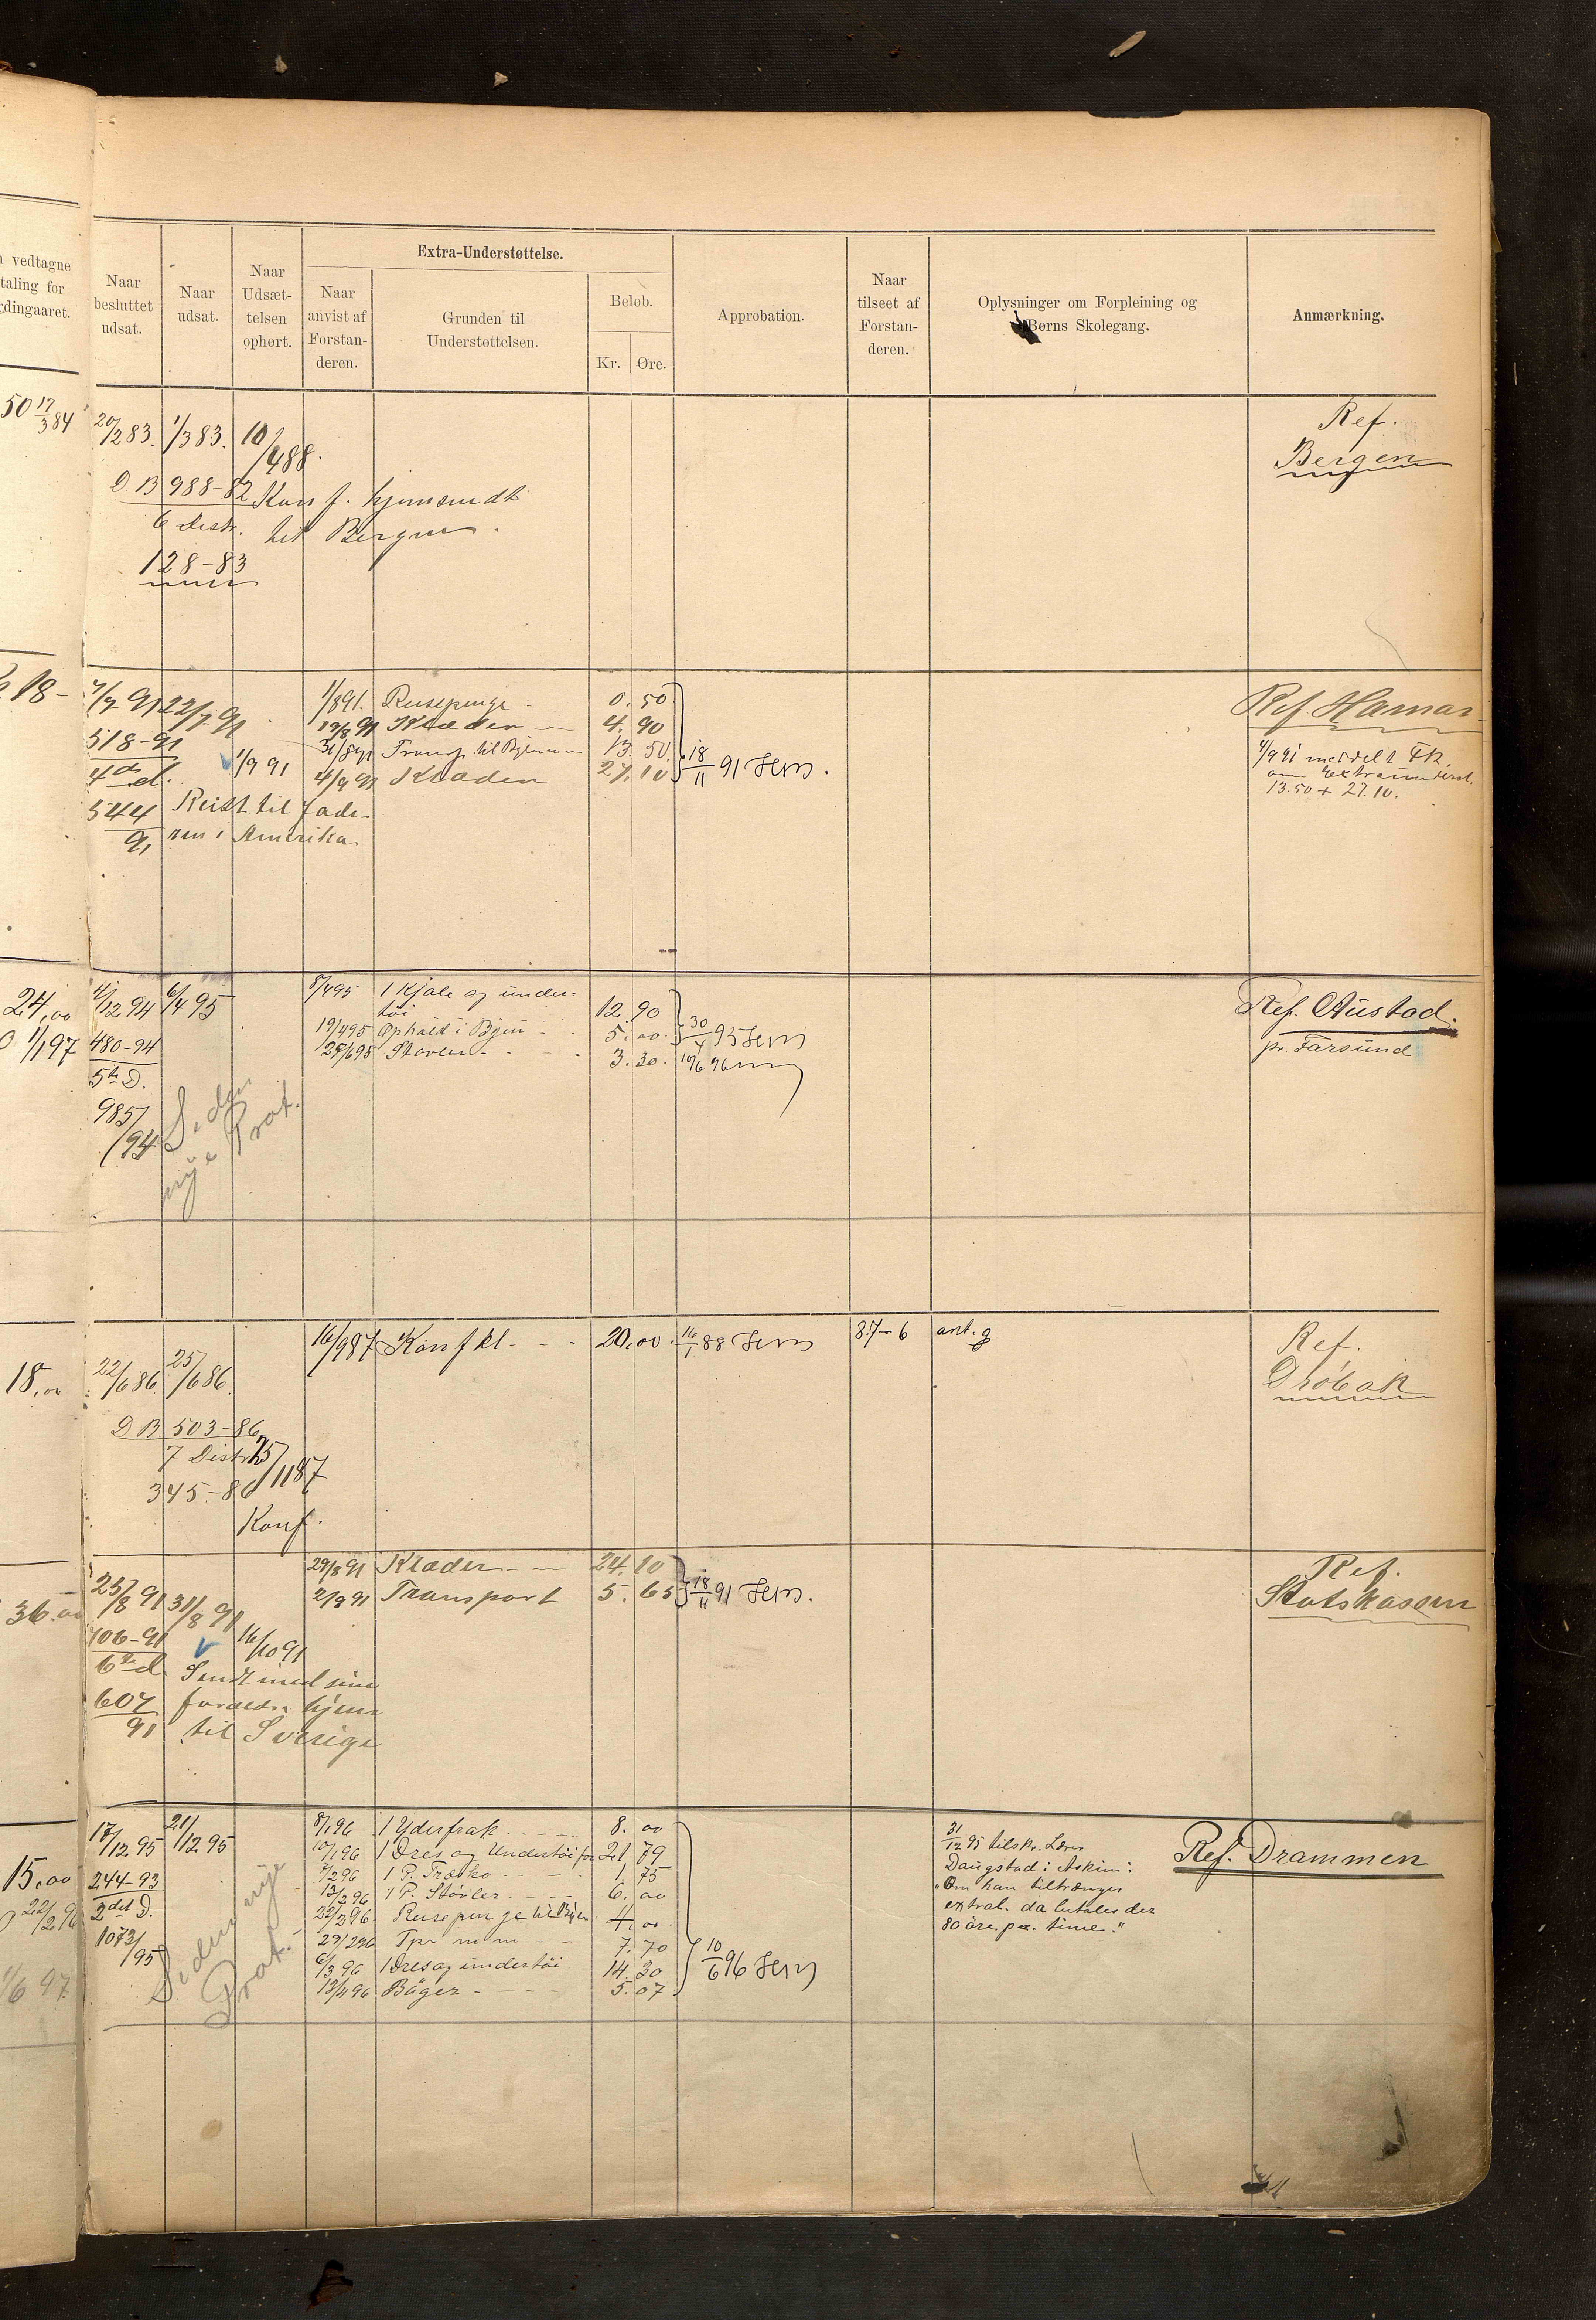 vedtagne
taling for
rdingaaret.
Naar
besluttet
udsat.
Naar
udsat.
Naar
Udsæt-
telsen
ophørt.
Extra-Understøttelse.
Naar
anvist af
Forstan-
deren.
Grunden til
Understøttelsen.
Beløb.
Kr. Øre.
Approbation.
Naar
tilseet af
Forstan-
deren.
Oplysninger om Forpleining og
Børns Skolegang.
Anmærkning.
50 17/3 84
20/2 83. 1/3 83. 10/4 88.
D B 988-82 Konf. hjemsendt
6 Distr. til Bergen.
128-83
Ref.
Bergen
18-
4/7 91 22/7 91
518-91
4de d. 1/9 91
544 Reist til fade-
91 ren i Amerika.
1/8 91. Reisepenge - 0.50
19/8 91 Klæder - 4.90
31/8 91 Transp. til Byen 13.50
4/9 91 Klæder 27.10
18/11 91 Jens.
Ref Hamar
4/9 91 meddelt FK.
om Extraunderst.
13.50 + 27.10.
24,00
1/1 97
4/12 94 6/4 95
480-94
5te D.
985/94
Se den
nye Prot.
8/4 95 1 Kjole og under-
tøi 12.90
19/4 95 Ophold i Byen 5.00
25/6 95 Støvler - 3.30
30/4 95 Jens
10/6 96
Ref. Austad.
pr. Farsund
18,00
22/6 86 25/6 86.
D B 503-86
7 Distr.
345-86
25/11 87
Konf.
16/9 87 Konf kl - - 20.00. 16/1 88 Jens 87-6 ant. g
Ref.
Drøbak
36.00
25/8 91 31/8 91
706-91 16/10 91
6te d Sendt med sine
607 forældre hjem
91 til Sverige
29/8 91 Klæder - 24.10
2/9 91 Transport 5.65
18/11 91 Jens.
Ref.
Statskassen
15,00
22/2 96
1/6 97
17/12 95 21/12 95
244-93
2det D.
1073/95
Se den nye
Prot.
8/1 96 1 Yderfrak - 8.00
10/1 96 1 Dres og Undertøi for 21.79
7/2 96 1 P. Træsko 1.75
13/2 96 1 P. Støvler - 6.00
22/2 96 Reisepenge til Byen 4.00
29/2 96 Tpr m m - 7.70
6/3 96 1 Dres og undertøi 14.30
13/4 96 Bøger - 5.07
10/6 96 Jens
31/12 95 tilskr. Lærer
Daugstad i Askim:
"Om han tiltrænger
extral. da betales der
80 øre pr. time."
Ref. Drammen